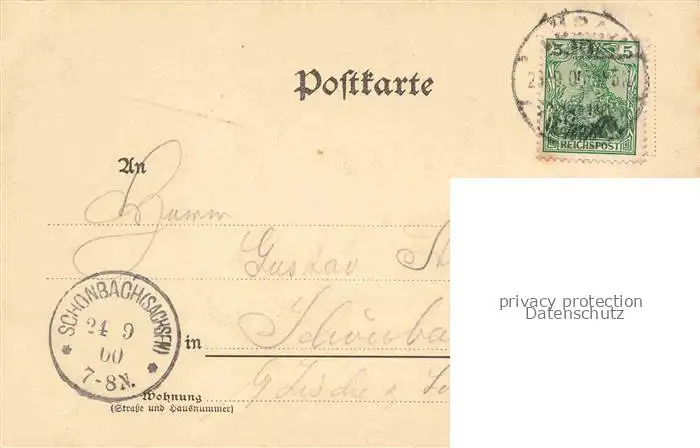 5 5
REICHSPOST
Postkarte
An
Herrn
Gustav
Schönba
SCHÖNBACH (SACHSEN)
24 9
00
7-8N.
in
Wohnung
(Straße und Hausnummer)
privacy protection
Datenschutz